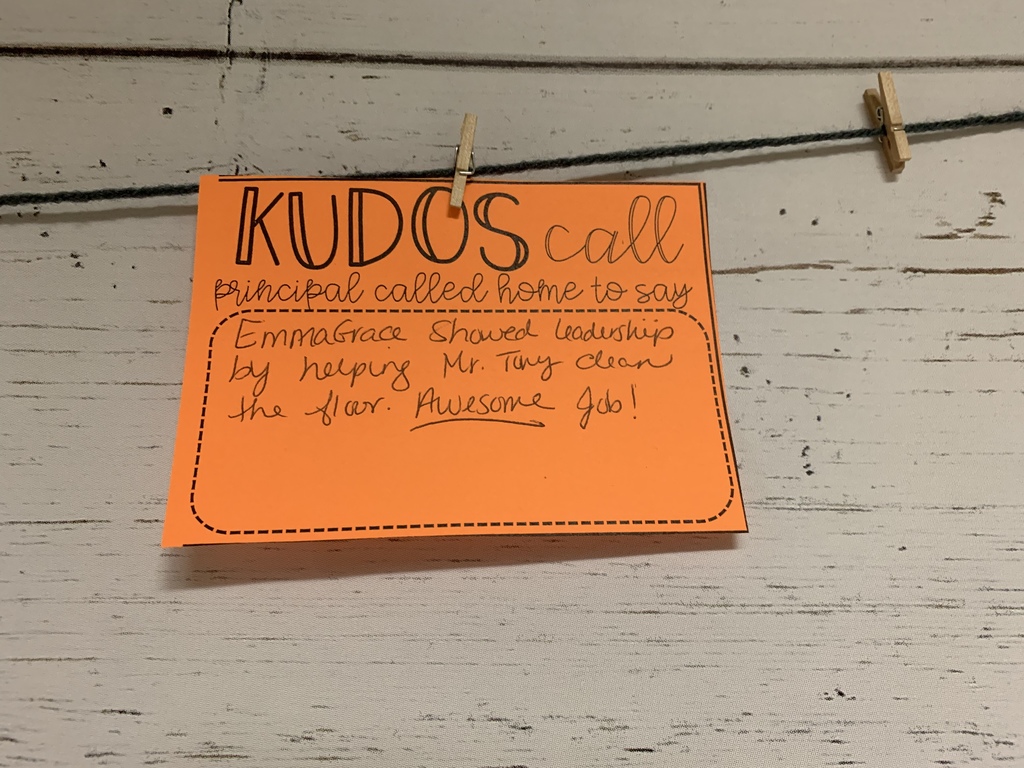 KUDOS call
principal called home to say
EmmaGrace Showed leadership
by helping Mr. Tiny clean
the floor. Awesome Job!